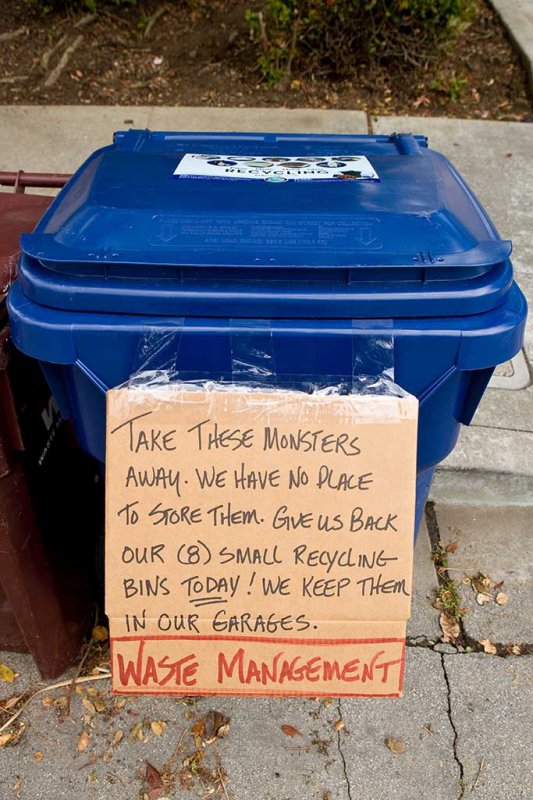 RECYCLING
TAKE THESE MONSTERS
AWAY. WE HAVE NO PLACE
TO STORE THEM. GIVE US BACK
OUR (8) SMALL RECYCLING
BINS TODAY! WE KEEP THEM
IN OUR GARAGES.
WASTE MANAGEMENT